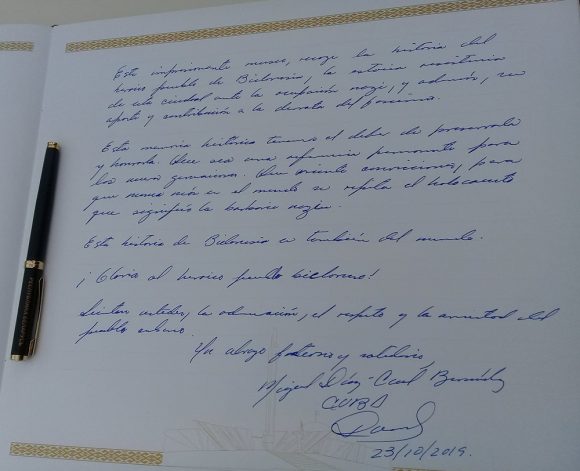 Este impresionante museo, recoge la historia del
heroico pueblo de Bielorrusia, la estoica resistencia
de esta ciudad ante la ocupación nazi, y además, su
aporte y contribución a la derrota del fascismo.
Esta memoria histórica tenemos el deber de preservarla
y honrarla. Que sea una referencia permanente para
las nuevas generaciones. Que oriente convicciones, para
que nunca más en el mundo se repita el holocausto
que significó la barbarie nazi.
Esta historia de Bielorrusia es también del mundo.
¡Gloria al heroico pueblo bielorruso!
Sientan ustedes, la admiración, el respeto y la amistad del
pueblo cubano.
Un abrazo fraterno y solidario,
Miguel Díaz-Canel Bermúdez
CUBA
23/10/2019.